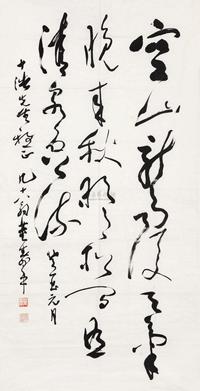 空山新雨後天氣
晚來秋明月松間照
清泉石上流
癸酉元月
先生雅正
九十翁董壽平